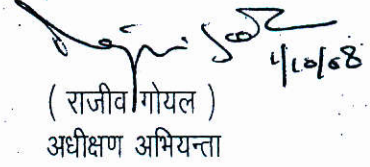 1/10/08
( राजीव गोयल )
अधीक्षण अभियन्ता